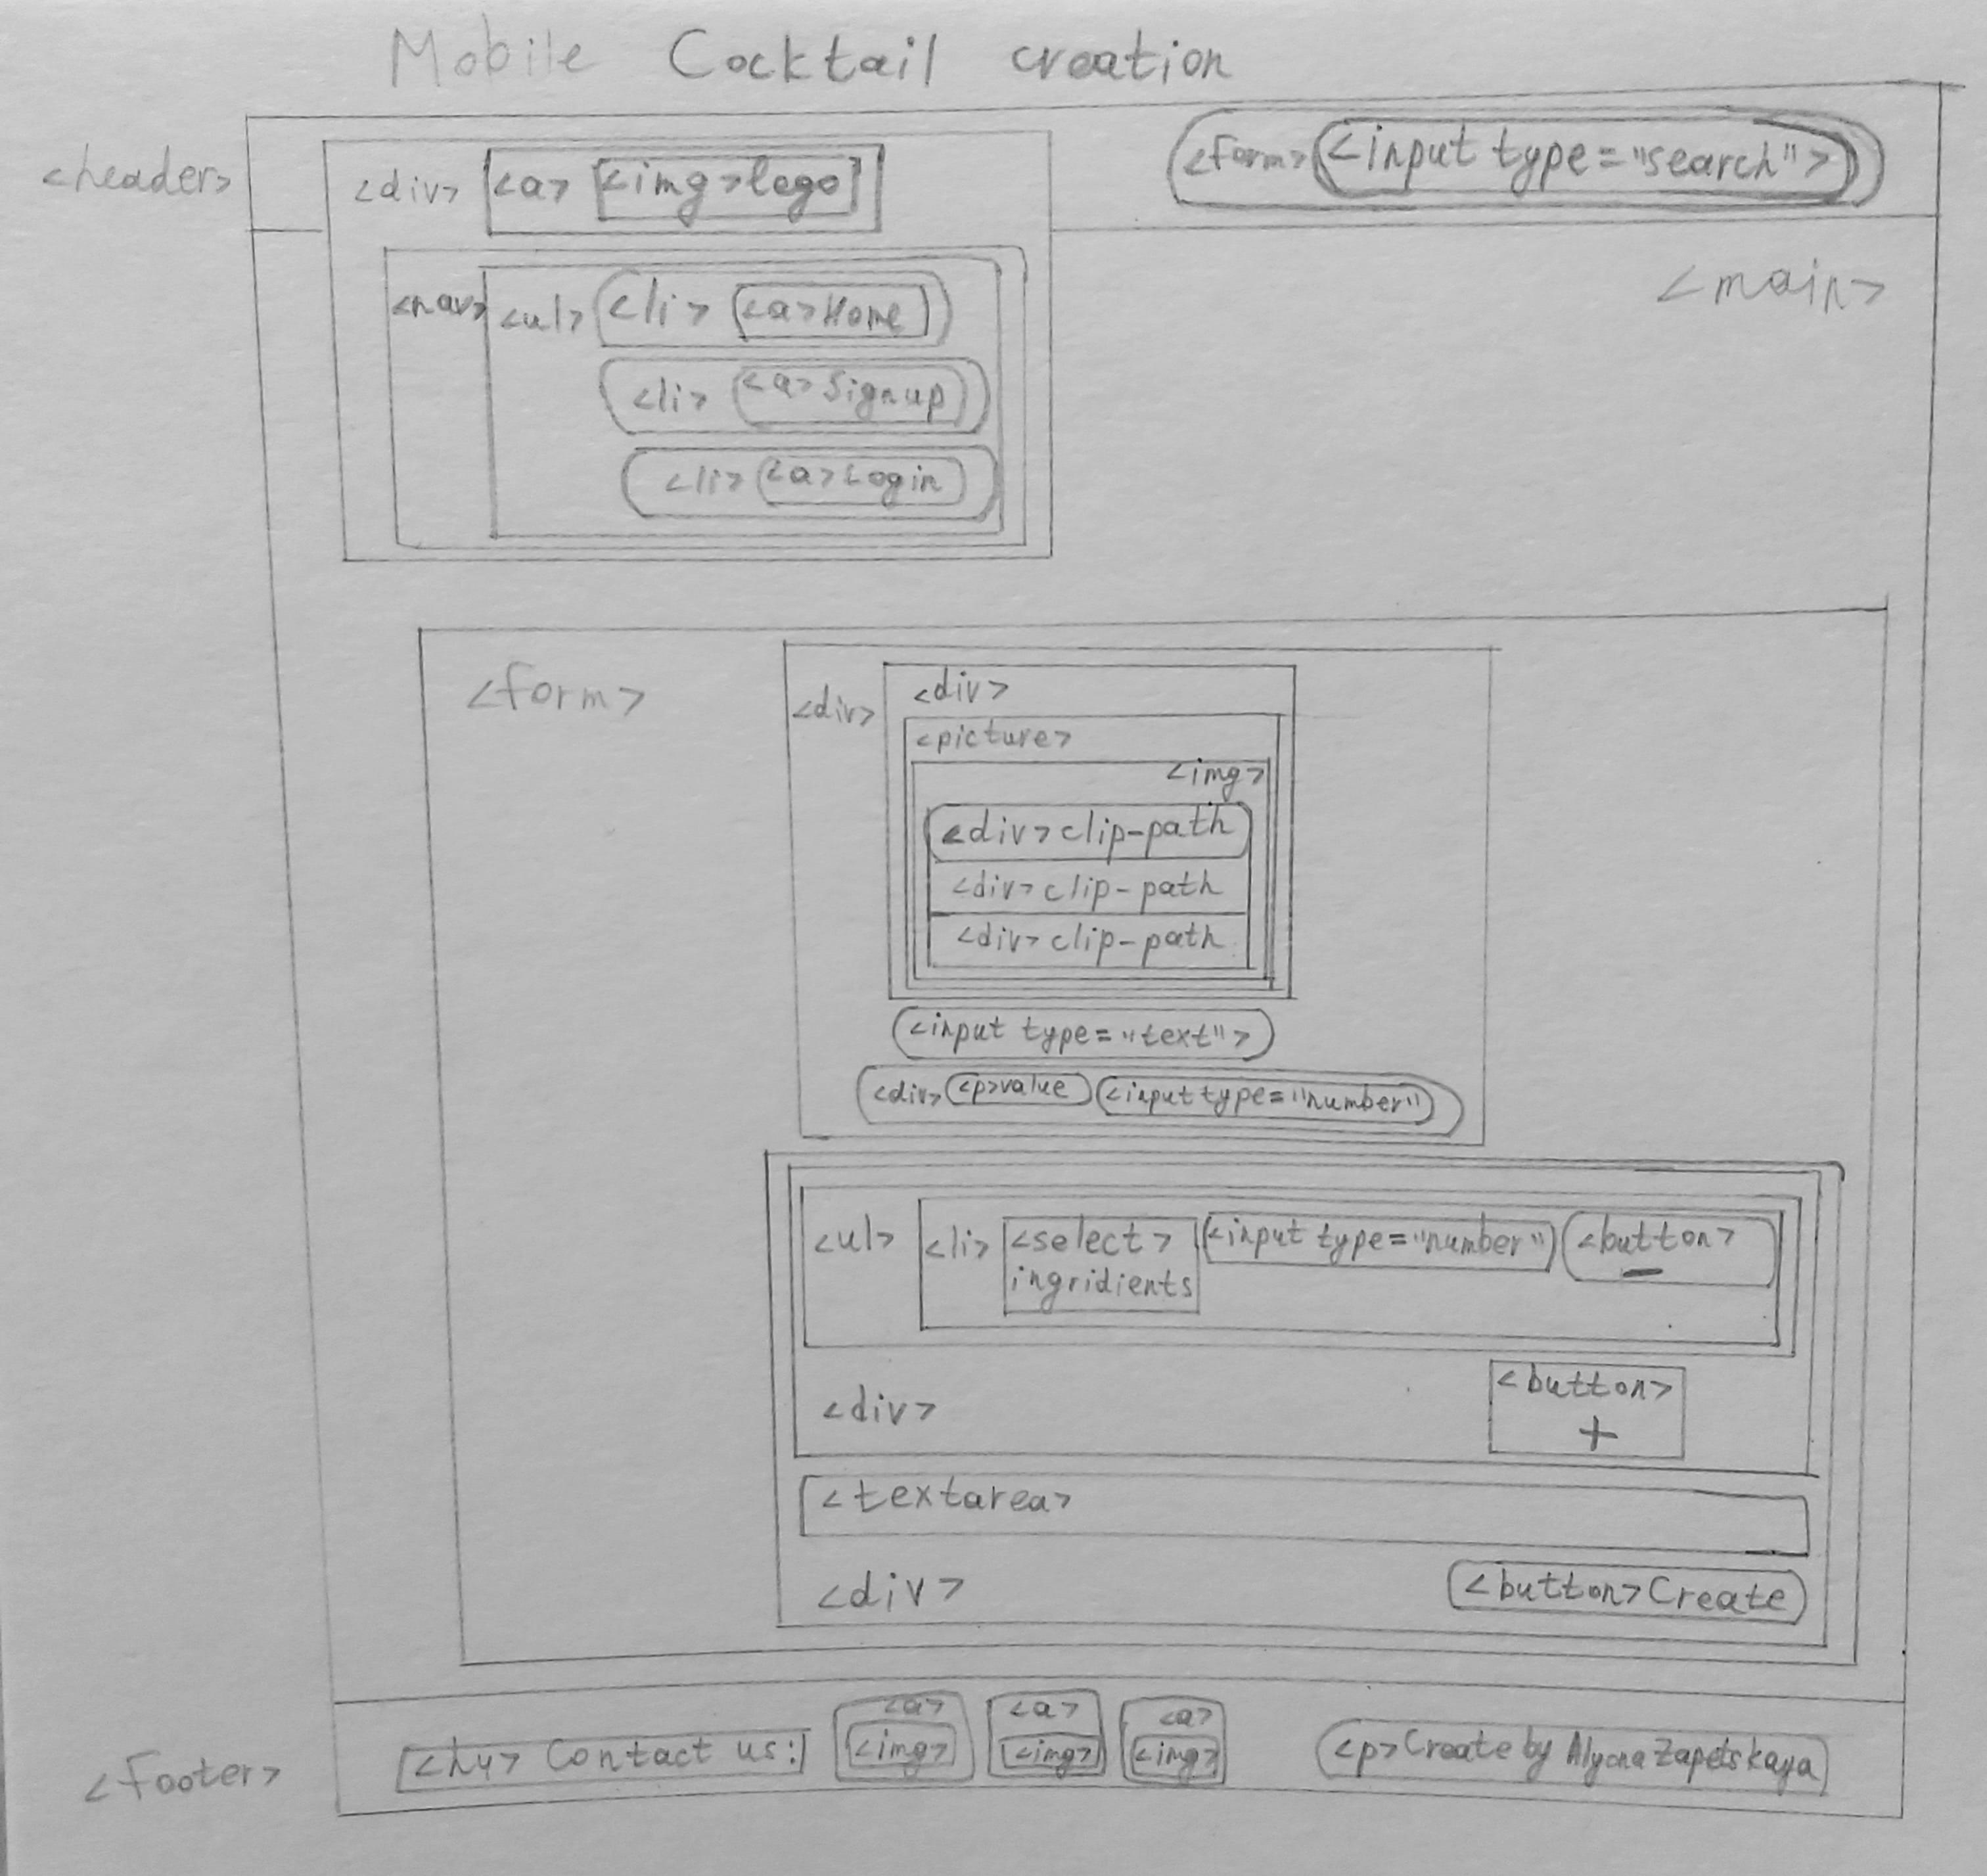 Mobile Cocktail creation
<header>
<div> <a> <img>logo
<form> <input type="search">
<main>
<nav> <ul> <li> <a>Home
<li> <a>Signup
<li> <a>Login
<form>
<div>
<div>
<picture>
<img>
<div>clip-path
<div>clip-path
<div>clip-path
<input type="text">
<div> <p>value <input type="number")
<ul> <li> <select> <input type="number") <button>
ingridients −
<div>
<button>
+
<textarea>
<div> <button>Create
<footer>
<h4> Contact us:
<a> <a> <a>
<img> <img> <img>
<p>Create by Alyona Zapetskaya